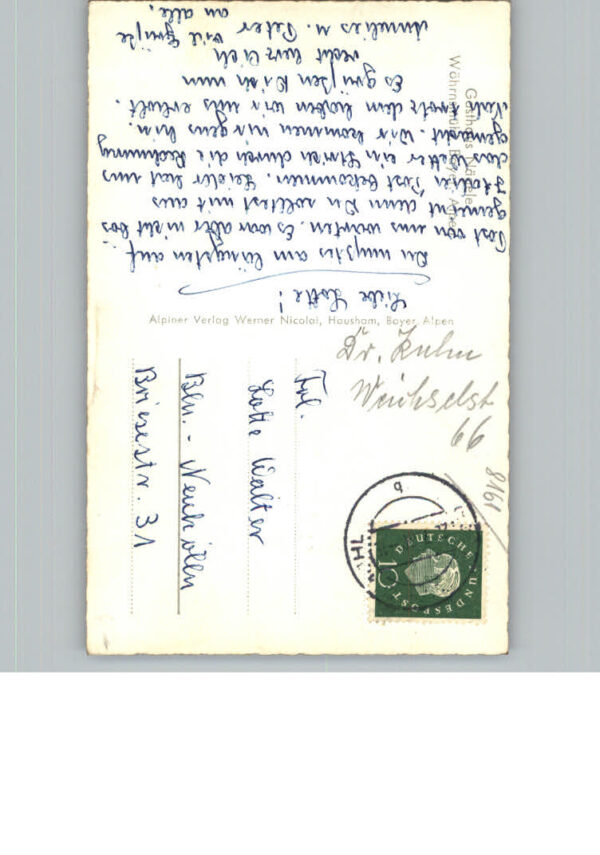 Liebe Lotte!
Du mußtes am längsten auf
Post von uns warten. Es war aber nicht bös
gemeint denn Du solltest mit aus
Italien Post bekommen. Leider hat uns
das Wetter ein Strich durch die Rechnung
gemacht. Wir kommen nirgens hin.
trotz dem haben wir uns erholt.
Es grüßen Dich nun
recht herzlich
Annelies u. Peter viel Grüße
an alle.
Gasthaus
Alpiner Verlag Werner Nicolai, Hausham, Bayer. Alpen
Frl.
Lotte Walter
Bln. - Neukölln
Briesestr. 31
Dr. Kuhn
Weichselst
66
8161
DEUTSCHE BUNDESPOST
10
b